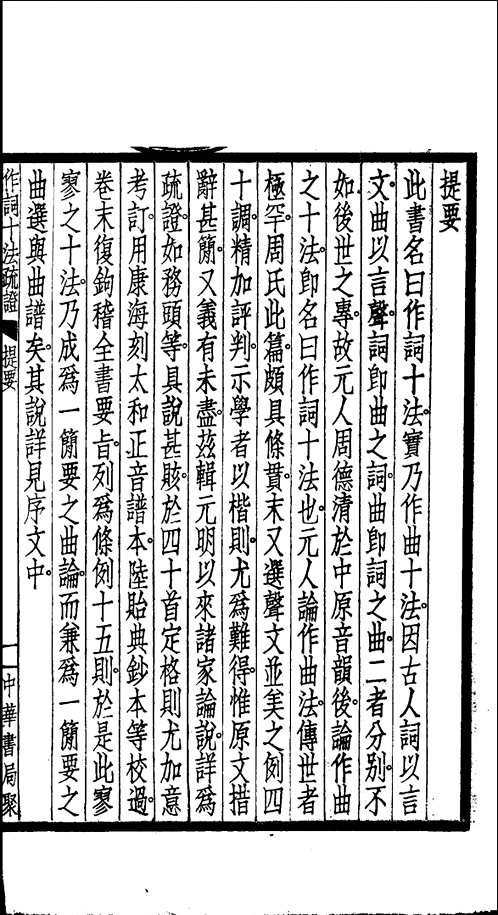 提要
此書名曰作詞十法。實乃作曲十法。因古人詞以言
文。曲以言聲。詞即曲之詞。曲即詞之曲。二者分別。不
如後世之專。故元人周德清於中原音韻後。論作曲
之十法。即名曰作詞十法也。元人論作曲法。傳世者
極罕。周氏此篇。頗具條貫。末又選聲文並美之例四
十調。精加評判。示學者以楷則。尤爲難得。惟原文措
辭甚簡。又義有未盡。茲輯元明以來諸家論說。詳爲
疏證。如務頭等。具說甚賅。於四十首定格則尤加意
考訂。用康海刻太和正音譜本。陸貽典鈔本等校過。
卷末復鉤稽全書要旨。列爲條例十五則。於是此寥
寥之十法。乃成爲一簡要之曲論。而兼爲一簡要之
曲選與曲譜矣。其說詳見序文中。
作詞十法疏證 提要 一 中華書局聚